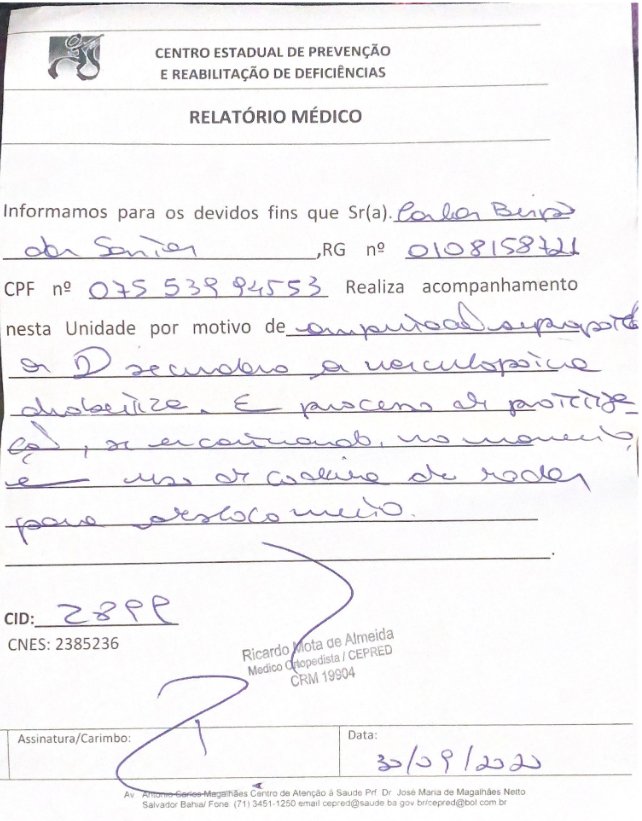 CENTRO ESTADUAL DE PREVENÇÃO
E REABILITAÇÃO DE DEFICIÊNCIAS
RELATÓRIO MÉDICO
Informamos para os devidos fins que Sr(a).
,RG nº 0108158721
CPF nº 075 539 94553 Realiza acompanhamento
nesta Unidade por motivo de amputação
D secundário a vasculopatia
diabética. E processo de protetiza
ção, se encontrando, no momento,
e uso de cadeira de rodas
para deslocamento.
CID:
CNES: 2385236
Ricardo Mota de Almeida
Medico Ortopedista / CEPRED
CRM 19904
Assinatura/Carimbo:
Data:
30/09/2020
Av Antonio Carlos Magalhães Centro de Atenção à Saude Prf. Dr José Maria de Magalhães Netto
Salvador Bahia/ Fone: (71) 3451-1250 email cepred@saude.ba.gov.br/cepred@bol.com.br